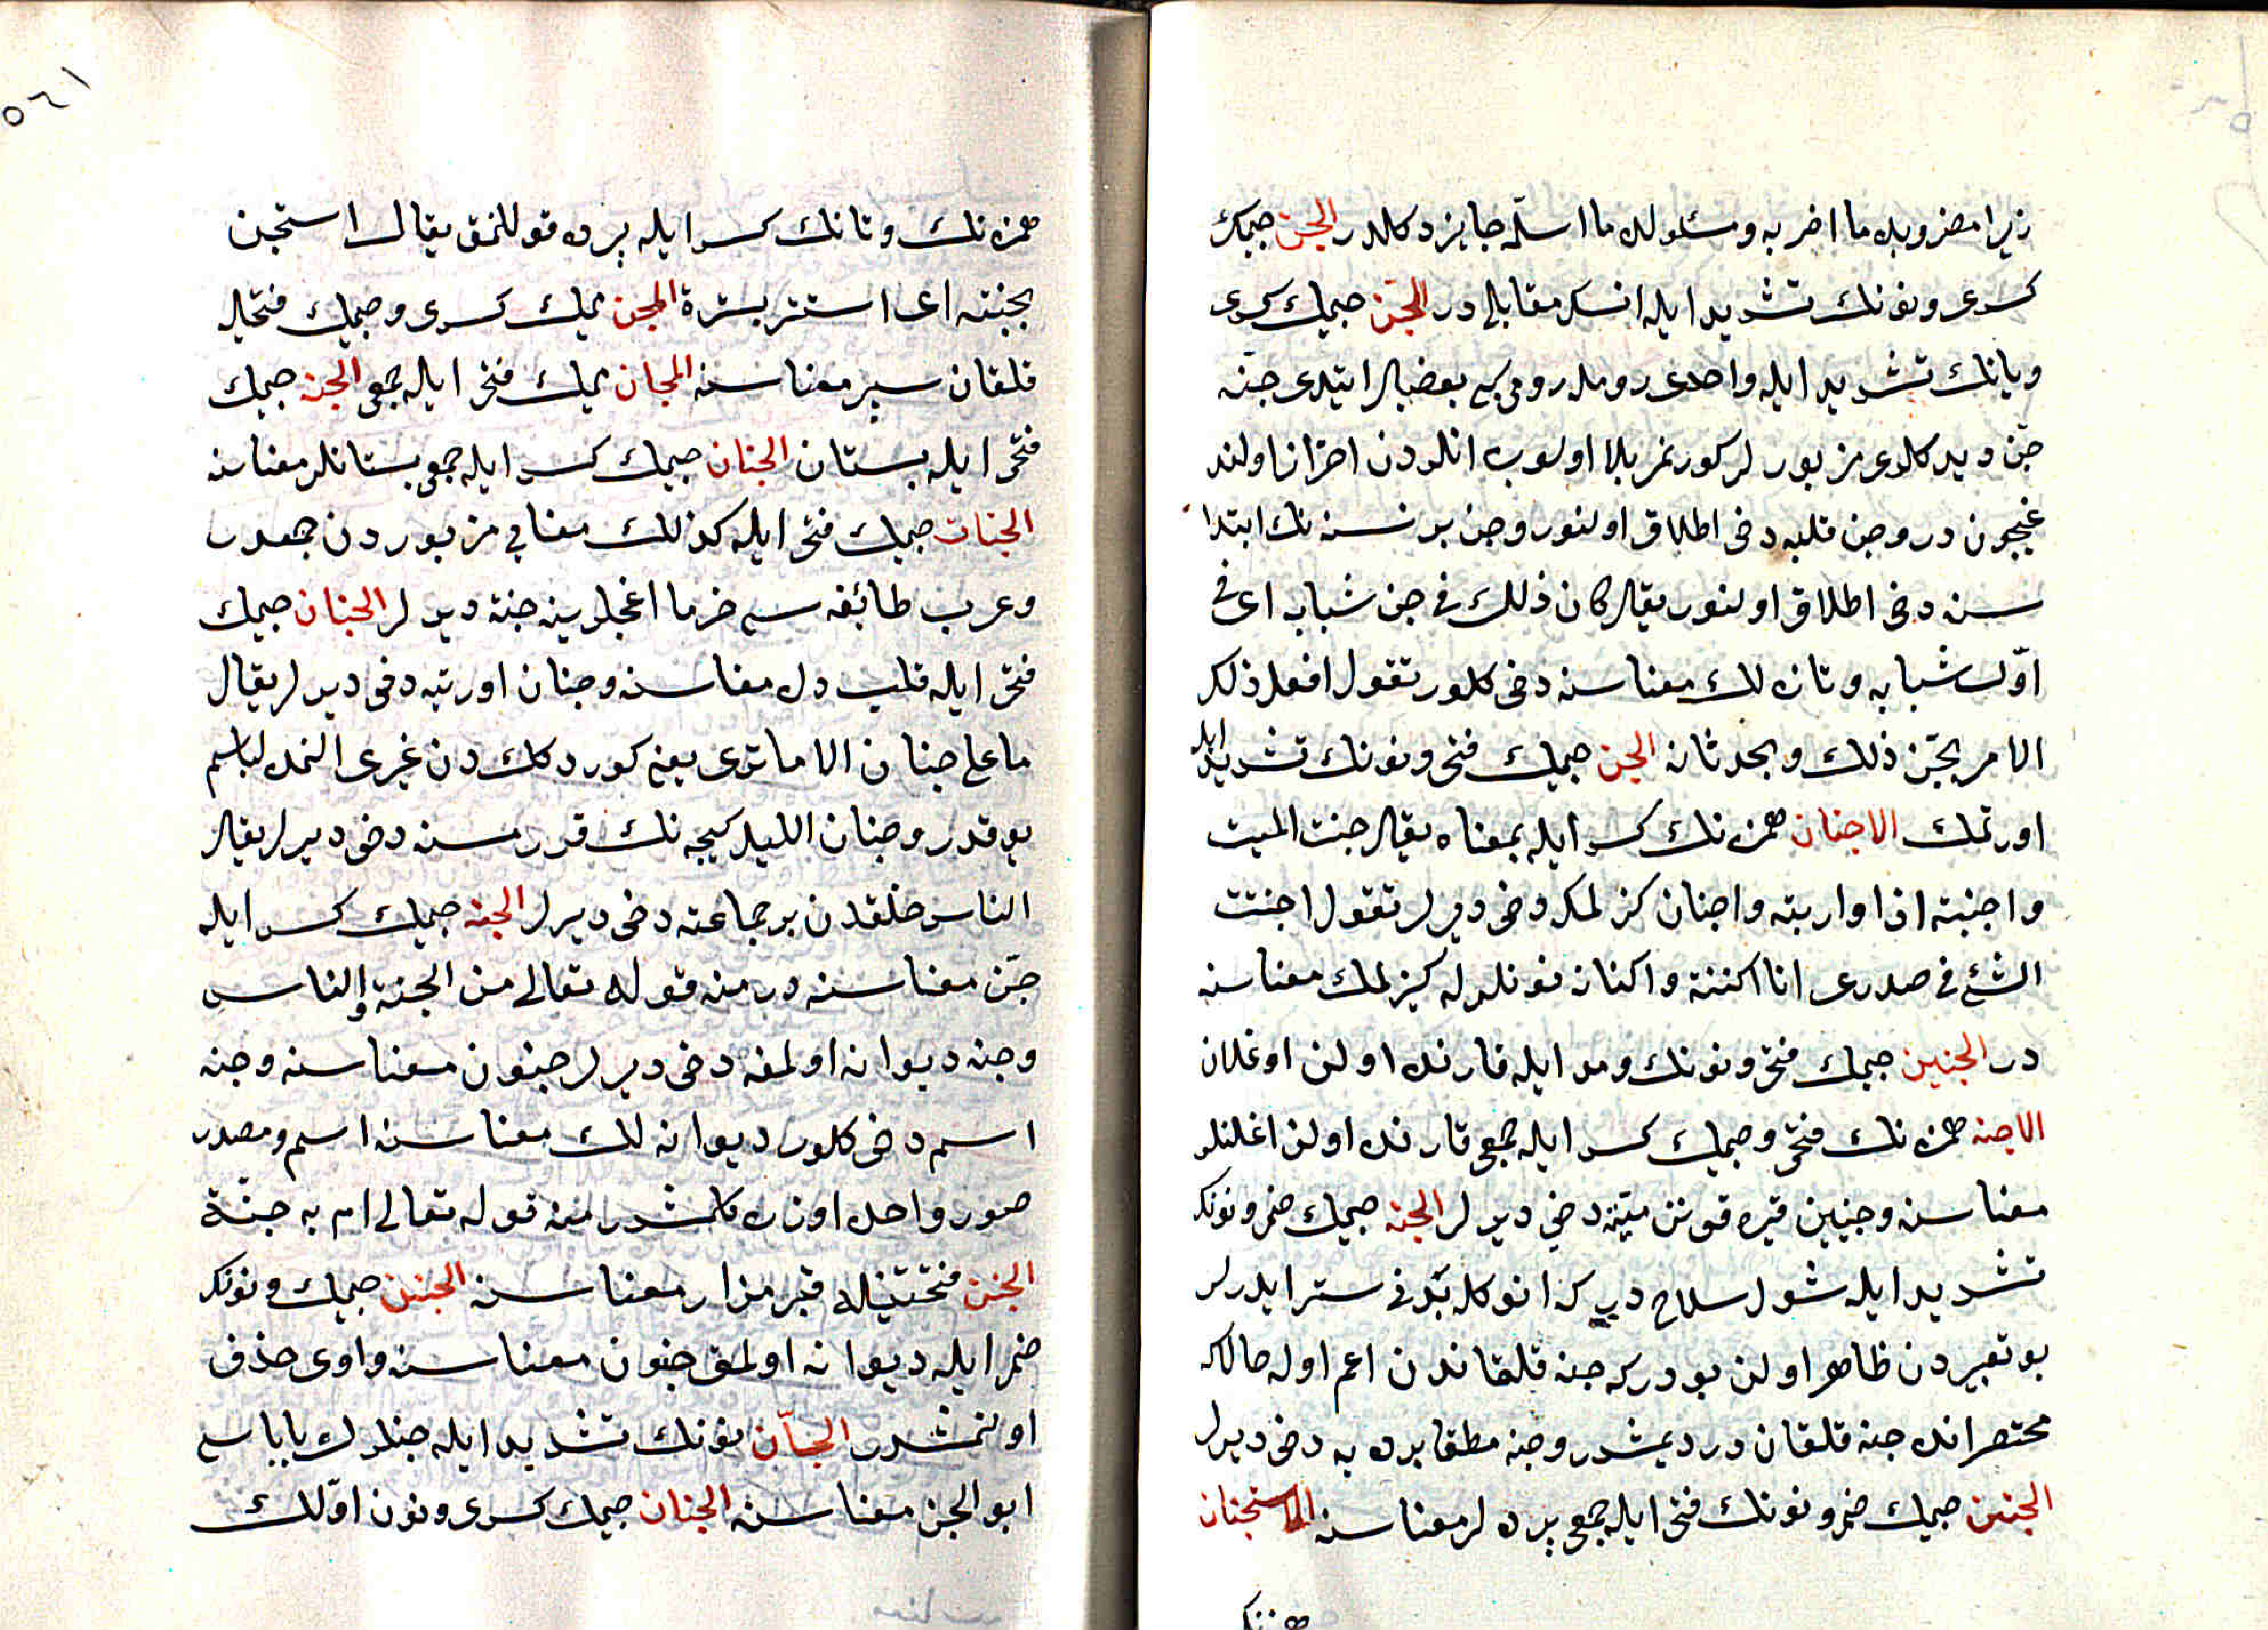 زيرا مضروبله ما اضربه ومسئولله ما اسله جايز دكلدر الجن جيمك
كسرى ونونك تشديد ايله انسك مقابلى در الجنى جيمك كسرى
ويانك تشديد ايله واحدى روملدر رومى كبى بعضيلر ايتدى جنه
جن ديدكلرى مزبورلر كورنمز بلا اولوب انلردن احتراز اولند
غيچون در وجن قلبه دخى اطلاق اولنور وجن بر نسنه نك ابتدا
سنه دخى اطلاق اولنور يقال كان ذلك فى جن شبابه اى فى
اول شبابه وتازه لك معناسنه دخى كلور تقول افعل ذلك
الامر بجن ذلك وبحدثانه الجن جيمك فتحى ونونك تشديد ايله
اورتمك الاجنان همزه نك كسر ايله بمعناه يقال جننت الميت
واجنبته اذا واريته واجنان كزلمكه دخى ديرلر تقول اجننت
الشئ فى صدرى انا اكننته واكنانه نونلرله كيزلمك معناسنه
در الجنين جيمك فتحى ونونك ومد ايله قارنده اولن اوغلان
الاجنه همزه نك فتحى وجيمك كسر ايله جمعى قارنده اولن اغلنلر
معناسنه وجنين قبره قونن ميته دخى ديرلر الجنه جيمك ضم ونونك
تشديد ايله شول سلاح دير كه انوكله بدنى ستر ايدرلر
بو تعبيردن ظاهر اولن بودركه جنه قلقاندن اعم اوله حالاكه
مختصرانده جنه قلقان در ديمشدر وجنه مطلقا برده يه دخى ديرلر
الجنن جيمك ضم ونونك فتحى ايله جمعى پرده لر معناسنه الاستجنان
همزه نك
١٦٥
همزه نك وتانك كسر ايله پرده قوللنمق يقال استجن
بجنته اى استتر بسترة المجن ميمك كسرى وجيمك فتحيله
قلقان سپر معناسنه المجان ميمك فتحى ايله جمعى الجنه جيمك
فتحى ايله بستان الجنان جيمك كسر ايله جمعى بستانلر معناسنه
الجنات جيمك فتحى ايله كذلك معنايى مزبوردن جمعدر
وعرب طائفه سى خرما اغجلرينه جنة ديرلر الجنان جيمك
فتحى ايله قلب دل معناسنه وجنان اورتيه دخى ديرلر يقال
ما على جنان الا ما ترى يعنى كوردكك دن غيرى النمده لباسم
يوقدر وجنان الليل كيجه نك قورسنه دخى ديرلر يقال
الناس خلقدن بر جماعته دخى ديرلر الجنه جيمك كسر ايله
جن معناسنه در منه قوله تعالى من الجنة والناس
وجنه ديوانه اولمغه دخى ديرلر جنون معناسنه وجنه
اسم دخى كلور ديوانه لك معناسنه اسم ومصدر
صور واحد اوزره كلمشدر منه قوله تعالى ام به جنة
الجنن فتحتينله قبر مزار معناسنه الجنن جيمك ونونك
ضم ايله ديوانه اولمق جنون معناسنه واوى حذف
اولنمشدر الجان نونك تشديد ايله جنلرك باباسى
ابو الجن معناسنه الجنان جيمك كسرى ونون اولك